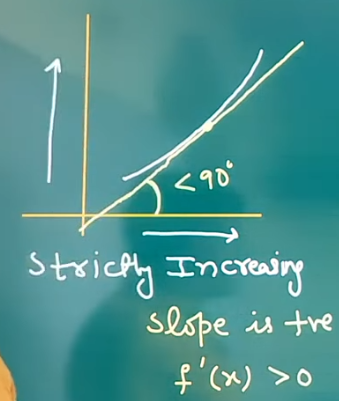 <90°
Strictly Increasing
Slope is +ve
f'(x) >0